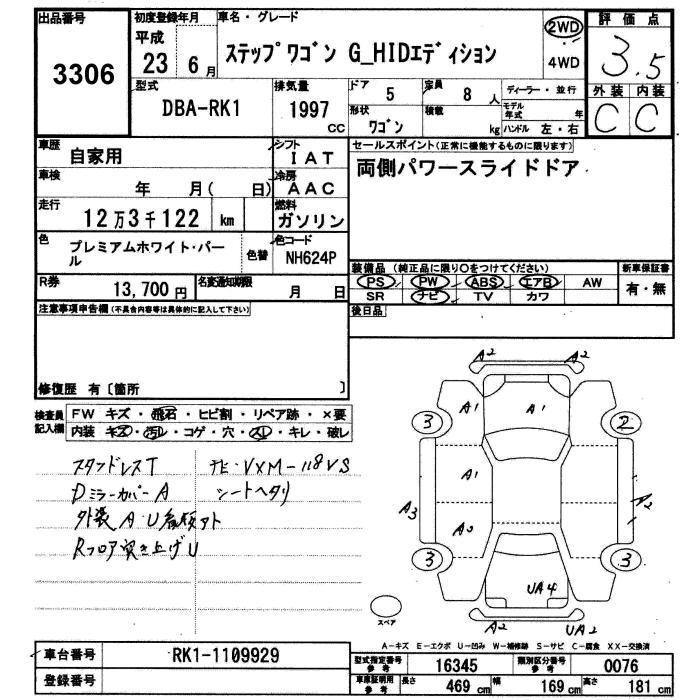 出品番号 初度登録年月 車名・グレード 2WD 評価点
3306 平成 23 6月 ステップワゴン G_HIDエディション 4WD 3.5
型式 排気量 ドア 5 定員 8人 ディーラー・並行 外装 内装
DBA-RK1 1997 CC 形状 ワゴン 積載 kg モデル年式 年 C C
ハンドル 左・右
車歴 自家用 シフト IAT セールスポイント(正常に機能するものに限ります)
車検 年 月( 日) 冷房 AAC 両側パワースライドドア
走行 12万3千122 km 燃料 ガソリン
色 プレミアムホワイト・パール 色替 色コード NH624P
装備品(純正品に限り○をつけてください) 新車保証書
R券 13,700円 名変通知期限 月 日 PS PW ABS エアB AW 有・無
SR ナビ TV カワ
注意事項申告欄(不具合内容等は具体的に記入して下さい) 後日品
修復歴 有〔箇所 〕
検査員記入欄 FW キズ・飛石・ヒビ割・リペア跡・×要
内装 キズ・汚レ・コゲ・穴・スレ・キレ・破レ
スタッドレスT ナビ・VXM-118VS
Dミラーカバー A シートヘタリ
外装 A・U
Rフロア突き上げU
A2 A2
3 A1 A1 2
A1
A3 A2 A2
3 UA4 3
A2 UA2
スペア
A-キズ E-エクボ U-凹み W-補修跡 S-サビ C-腐食 XX-交換済
車台番号 RK1-1109929 型式指定番号 参考 16345 類別区分番号 参考 0076
登録番号 車庫証明用 参考 長さ 469 cm 幅 169 cm 高さ 181 cm